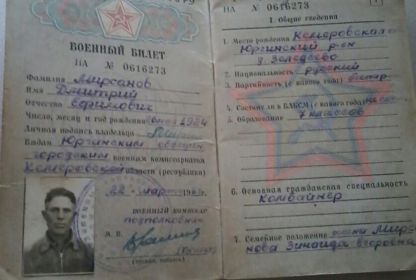 ВОЕННЫЙ БИЛЕТ
НА № 0616273
Фамилия Мирсанов
Имя Дмитрий
Отчество Ефимович
Число, месяц и год рождения 1924
Личная подпись владельца
Выдан Юргинским
городским военным комиссариатом
Кемеровской области (республики)
22 март
ВОЕННЫЙ КОМИССАР
подполковник
М. П.
НА № 0616273
1
I. Общие сведения
1. Место рождения Кемеровская
Юргинский р-он
д. Заледеево
2. Национальность русский
3. Партийность (с какого года)
4. Состоит ли в ВЛКСМ (с какого года)
5. Образование 7 классов
6. Основная гражданская специальность
Комбайнер
7. Семейное положение жена Мирса
нова Зинаида Егоровна